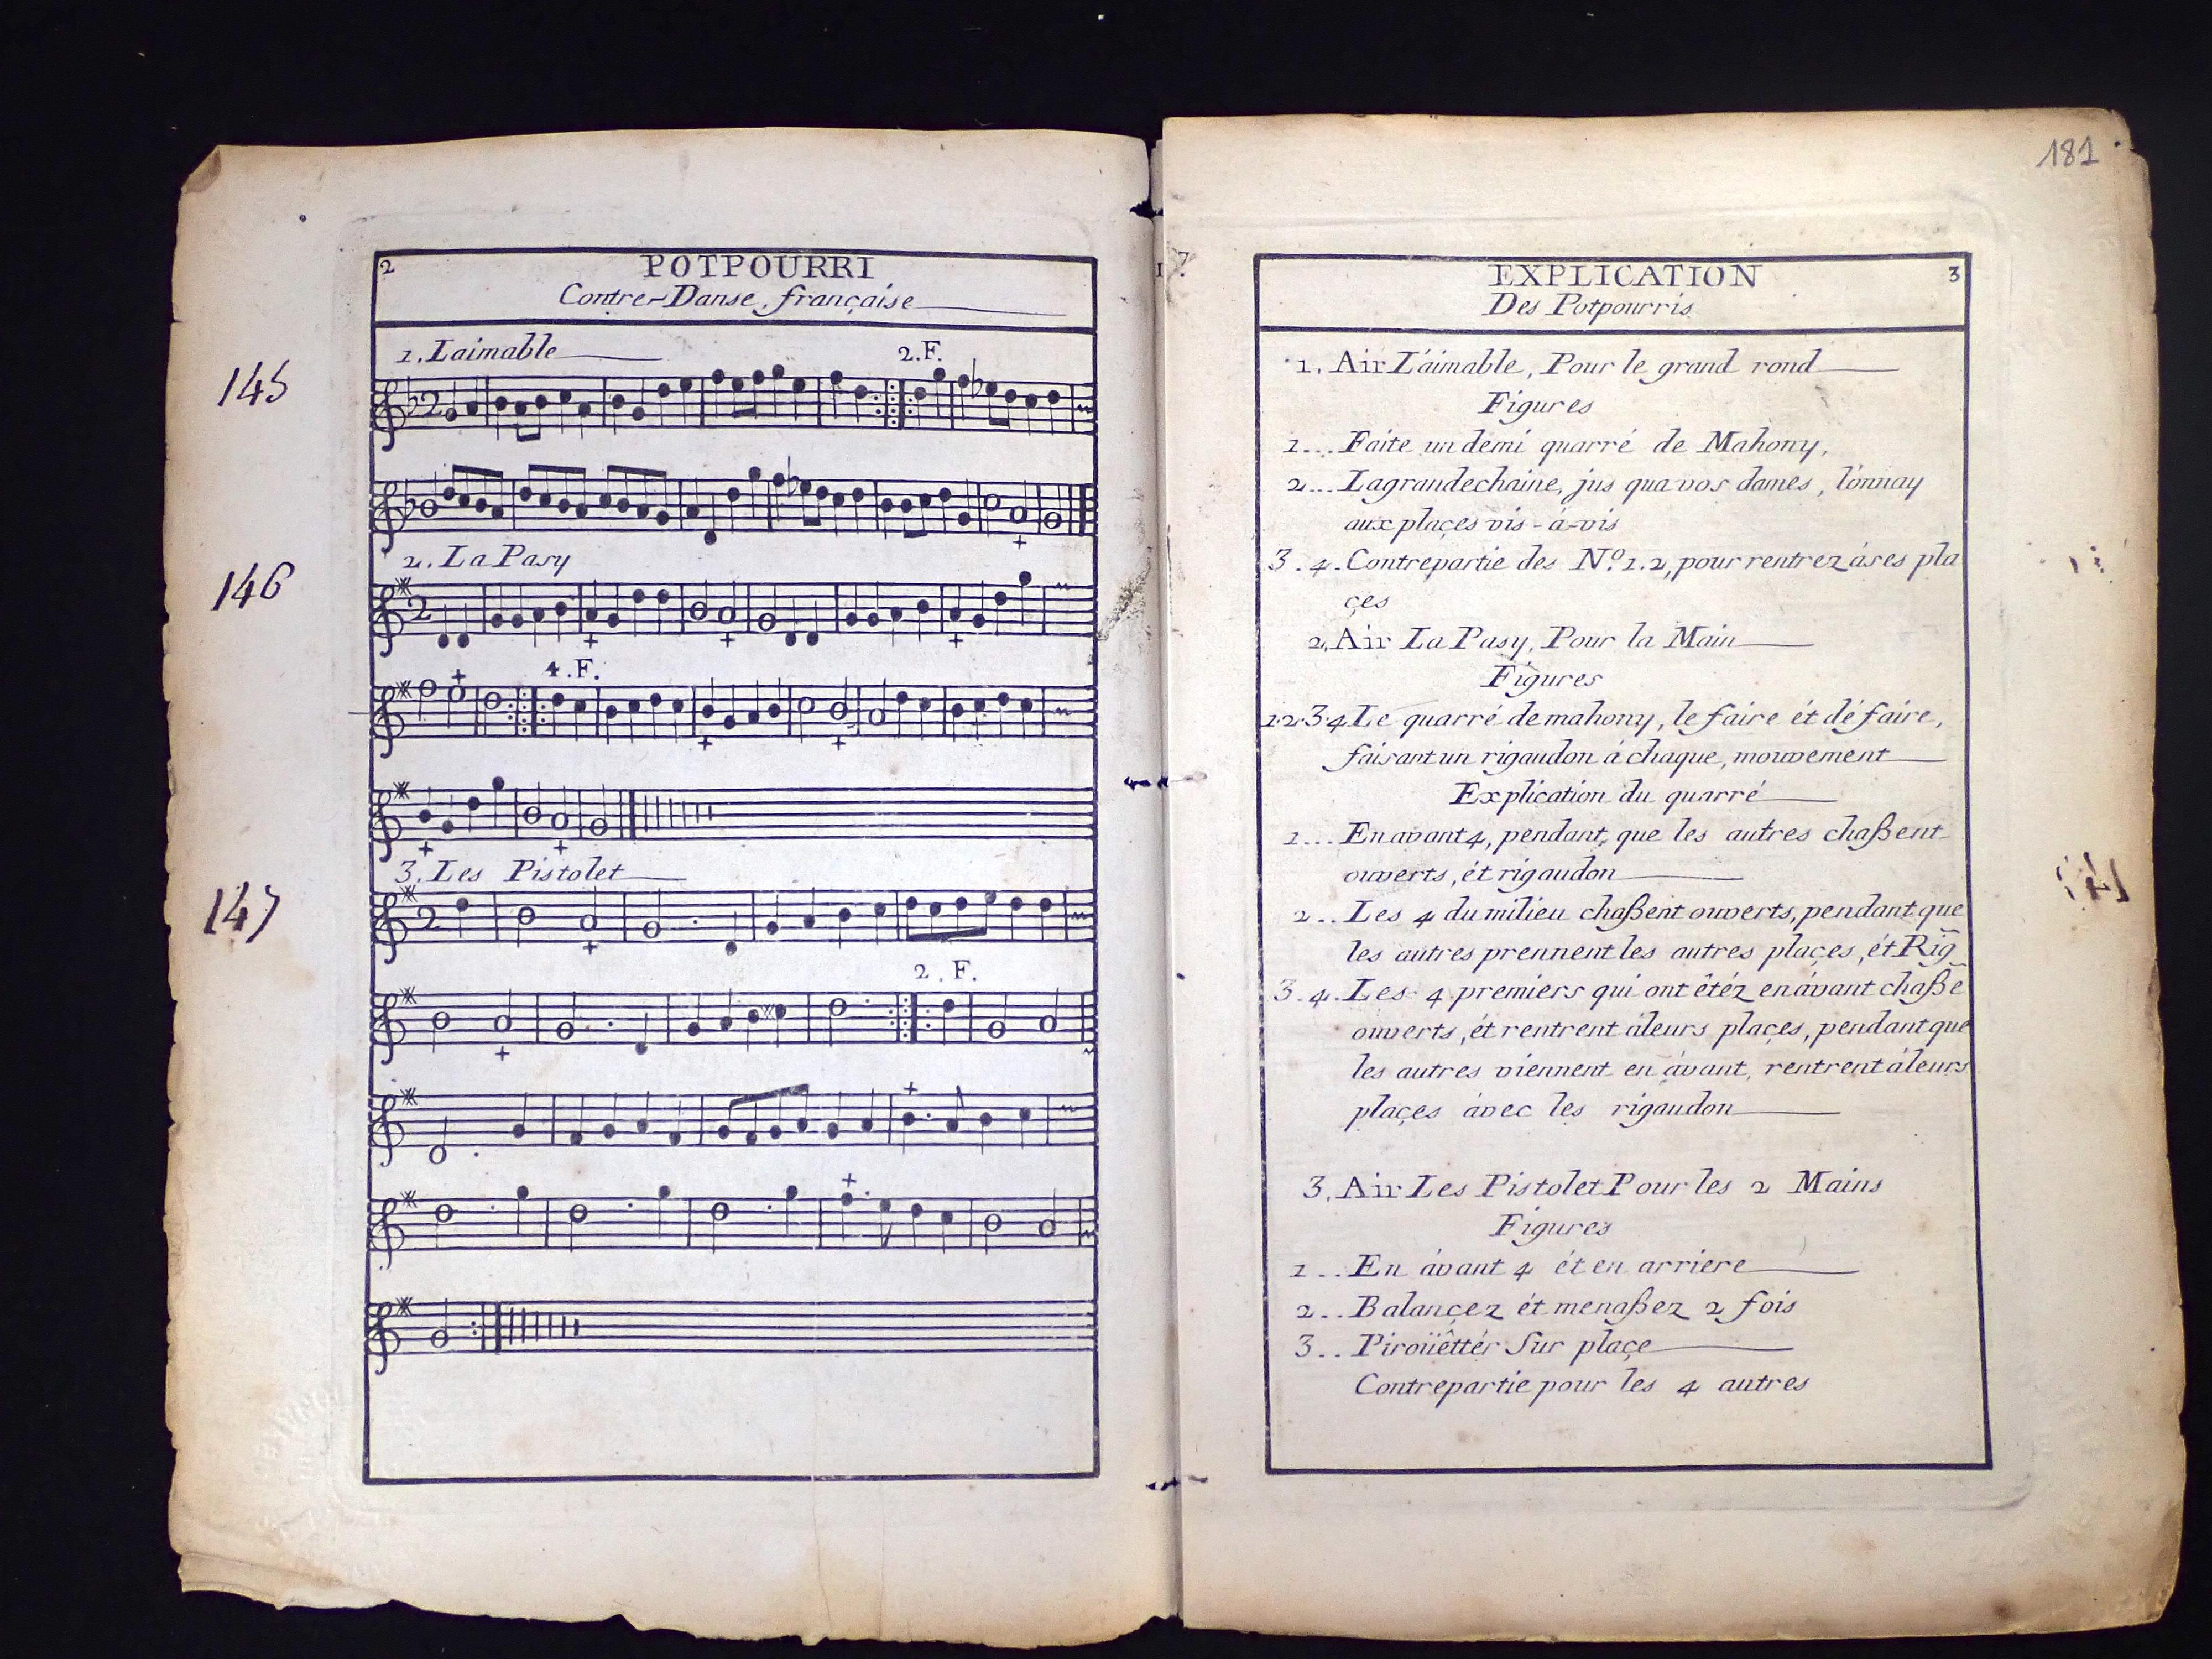 2
POTPOURRI
Contre-Danse, française
1. Laimable
2.F.
145
2. La Pasy
146
4.F.
3. Les Pistolet
147
2. F.
181
EXPLICATION
3
Des Potpourris
1. Air L'aimable, Pour le grand rond
Figures
1.... Faite un demi quarré de Mahony,
2... Lagrandechaine, jus qua vos dames, l'onnay
aux plaçes vis-à-vis
3.4. Contrepartie des N.º 1.2, pour rentrez áses pla
çes
2, Air La Pasy, Pour la Main
Figures
1.2.3.4 Le quarré de mahony, le faire ét dé faire,
faisant un rigaudon à chaque, mouvement
Explication du quarré
1... En avant 4, pendant, que les autres chaßent
ouverts, ét rigaudon
2.. Les 4 du milieu chaßent ouverts, pendant que
les autres prennent les autres plaçes, ét Rig
3.4. Les 4 premiers qui ont êtéz en ávant chaße
ouverts, ét rentrent áleurs plaçes, pendant que
les autres viennent en ávant, rentrent áleurs
plaçes ávec les rigaudon
3, Air Les Pistolet Pour les 2 Mains
Figures
1... En ávant 4 ét en arriere
2.. Balançez ét menaßez 2 fois
3.. Piroüêttér Sur plaçe
Contrepartie pour les 4 autres